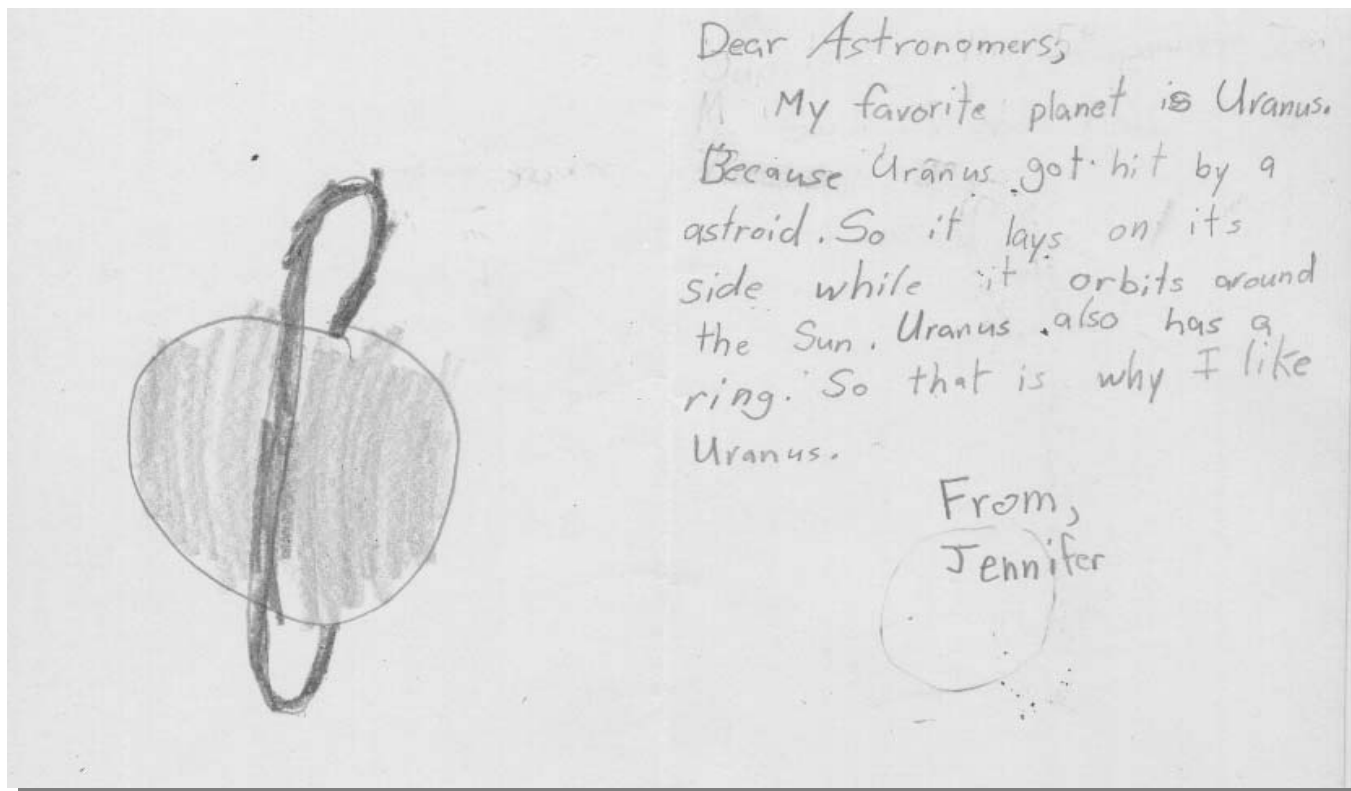 Dear Astronomers,
My favorite planet is Uranus.
Because Uranus got hit by a
astroid. So it lays on its
side while it orbits around
the Sun. Uranus also has a
ring. So that is why I like
Uranus.
From,
Jennifer